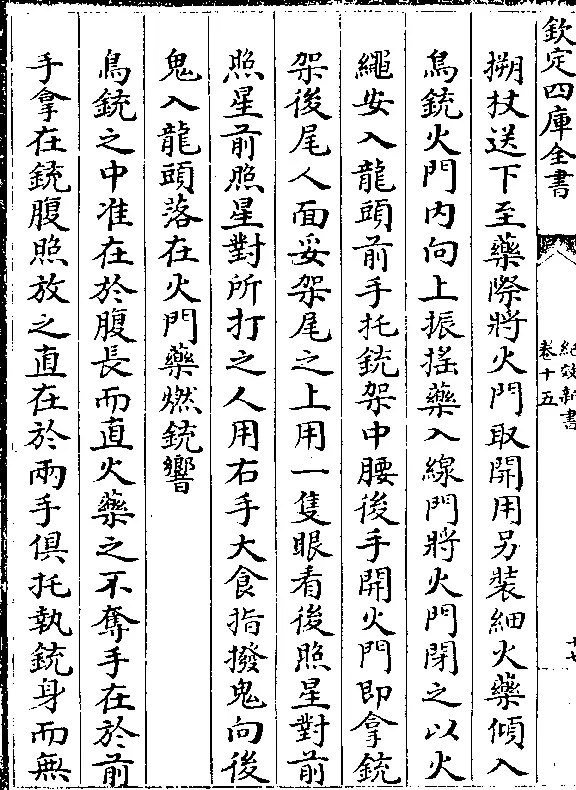 欽定四庫全書
紀效新書
卷十五
十七
搠杖送下至藥際將火門取開用另裝細火藥傾入
鳥銃火門內向上振搖藥入線門將火門閉之以火
繩安入龍頭前手托銃架中腰後手開火門即拿銃
架後尾人面妥架尾之上用一隻眼看後照星對前
照星前照星對所打之人用右手大食指撥鬼向後
鬼入龍頭落在火門藥燃銃響
鳥銃之中准在於腹長而直火藥之不奪手在於前
手拿在銃腹照放之直在於兩手俱托執銃身而無